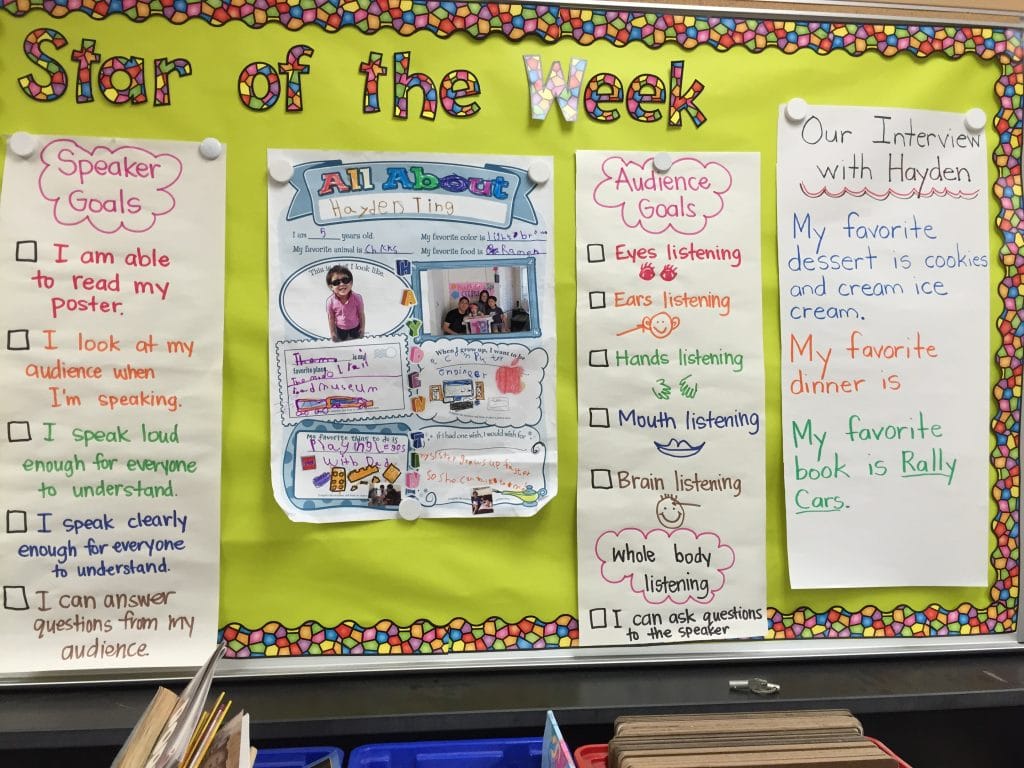 Star of the Week
Speaker
Goals
I am able
to read my
poster.
I look at my
audience when
I'm speaking.
I speak loud
enough for everyone
to understand.
I speak clearly
enough for everyone
to understand.
I can answer
questions from my
audience
All About
Hayden Ting
I am 5 years old.
My favorite color is
My favorite animal is
My favorite food is Ramen
This is what I look like.
HAYDEN TING
is my
favorite place.
museum
When I grow up, I want to be
engineer
My favorite thing to do is
Playing legos
with Dad
If I had one wish, I would wish for
my sister grows up faster
so she can
Audience
Goals
Eyes listening
Ears listening
Hands listening
Mouth listening
Brain listening
Whole body
listening
I can ask questions
to the speaker
Our Interview
with Hayden
My favorite
dessert is cookies
and cream ice
cream.
My favorite
dinner is
My favorite
book is Rally
Cars.